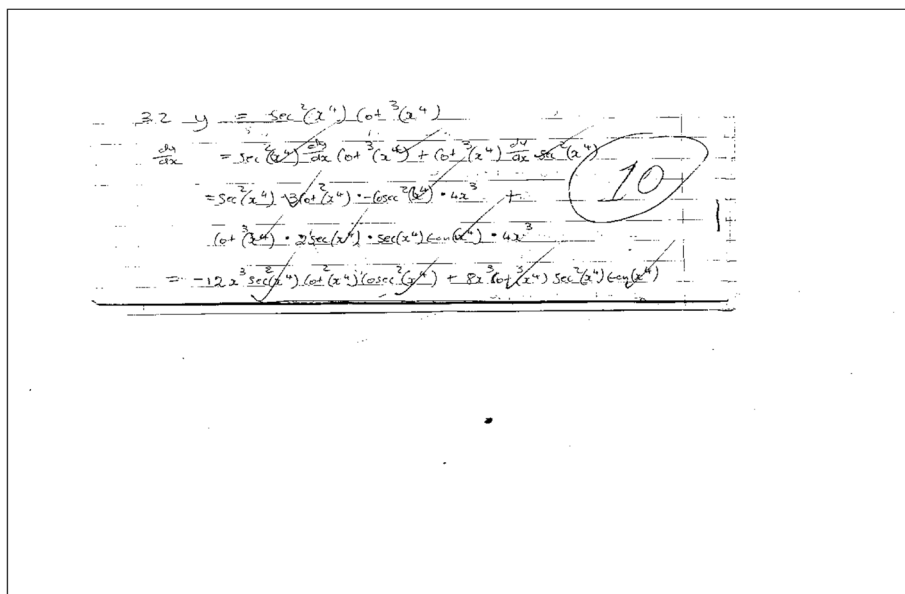 3.2 y = sec²(x⁴) cot³(x⁴)
dy/dx = sec²(x⁴) dy/dx cot³(x⁴) + cot³(x⁴) dy/dx sec²(x⁴)
10
= sec²(x⁴) · 3cot²(x⁴) · -cosec²(x⁴) · 4x³ +
cot³(x⁴) · 2sec(x⁴) · sec(x⁴) tan(x⁴) · 4x³
= -12x³ sec²(x⁴) cot²(x⁴) cosec²(x⁴) + 8x³ cot³(x⁴) sec²(x⁴) tan(x⁴)